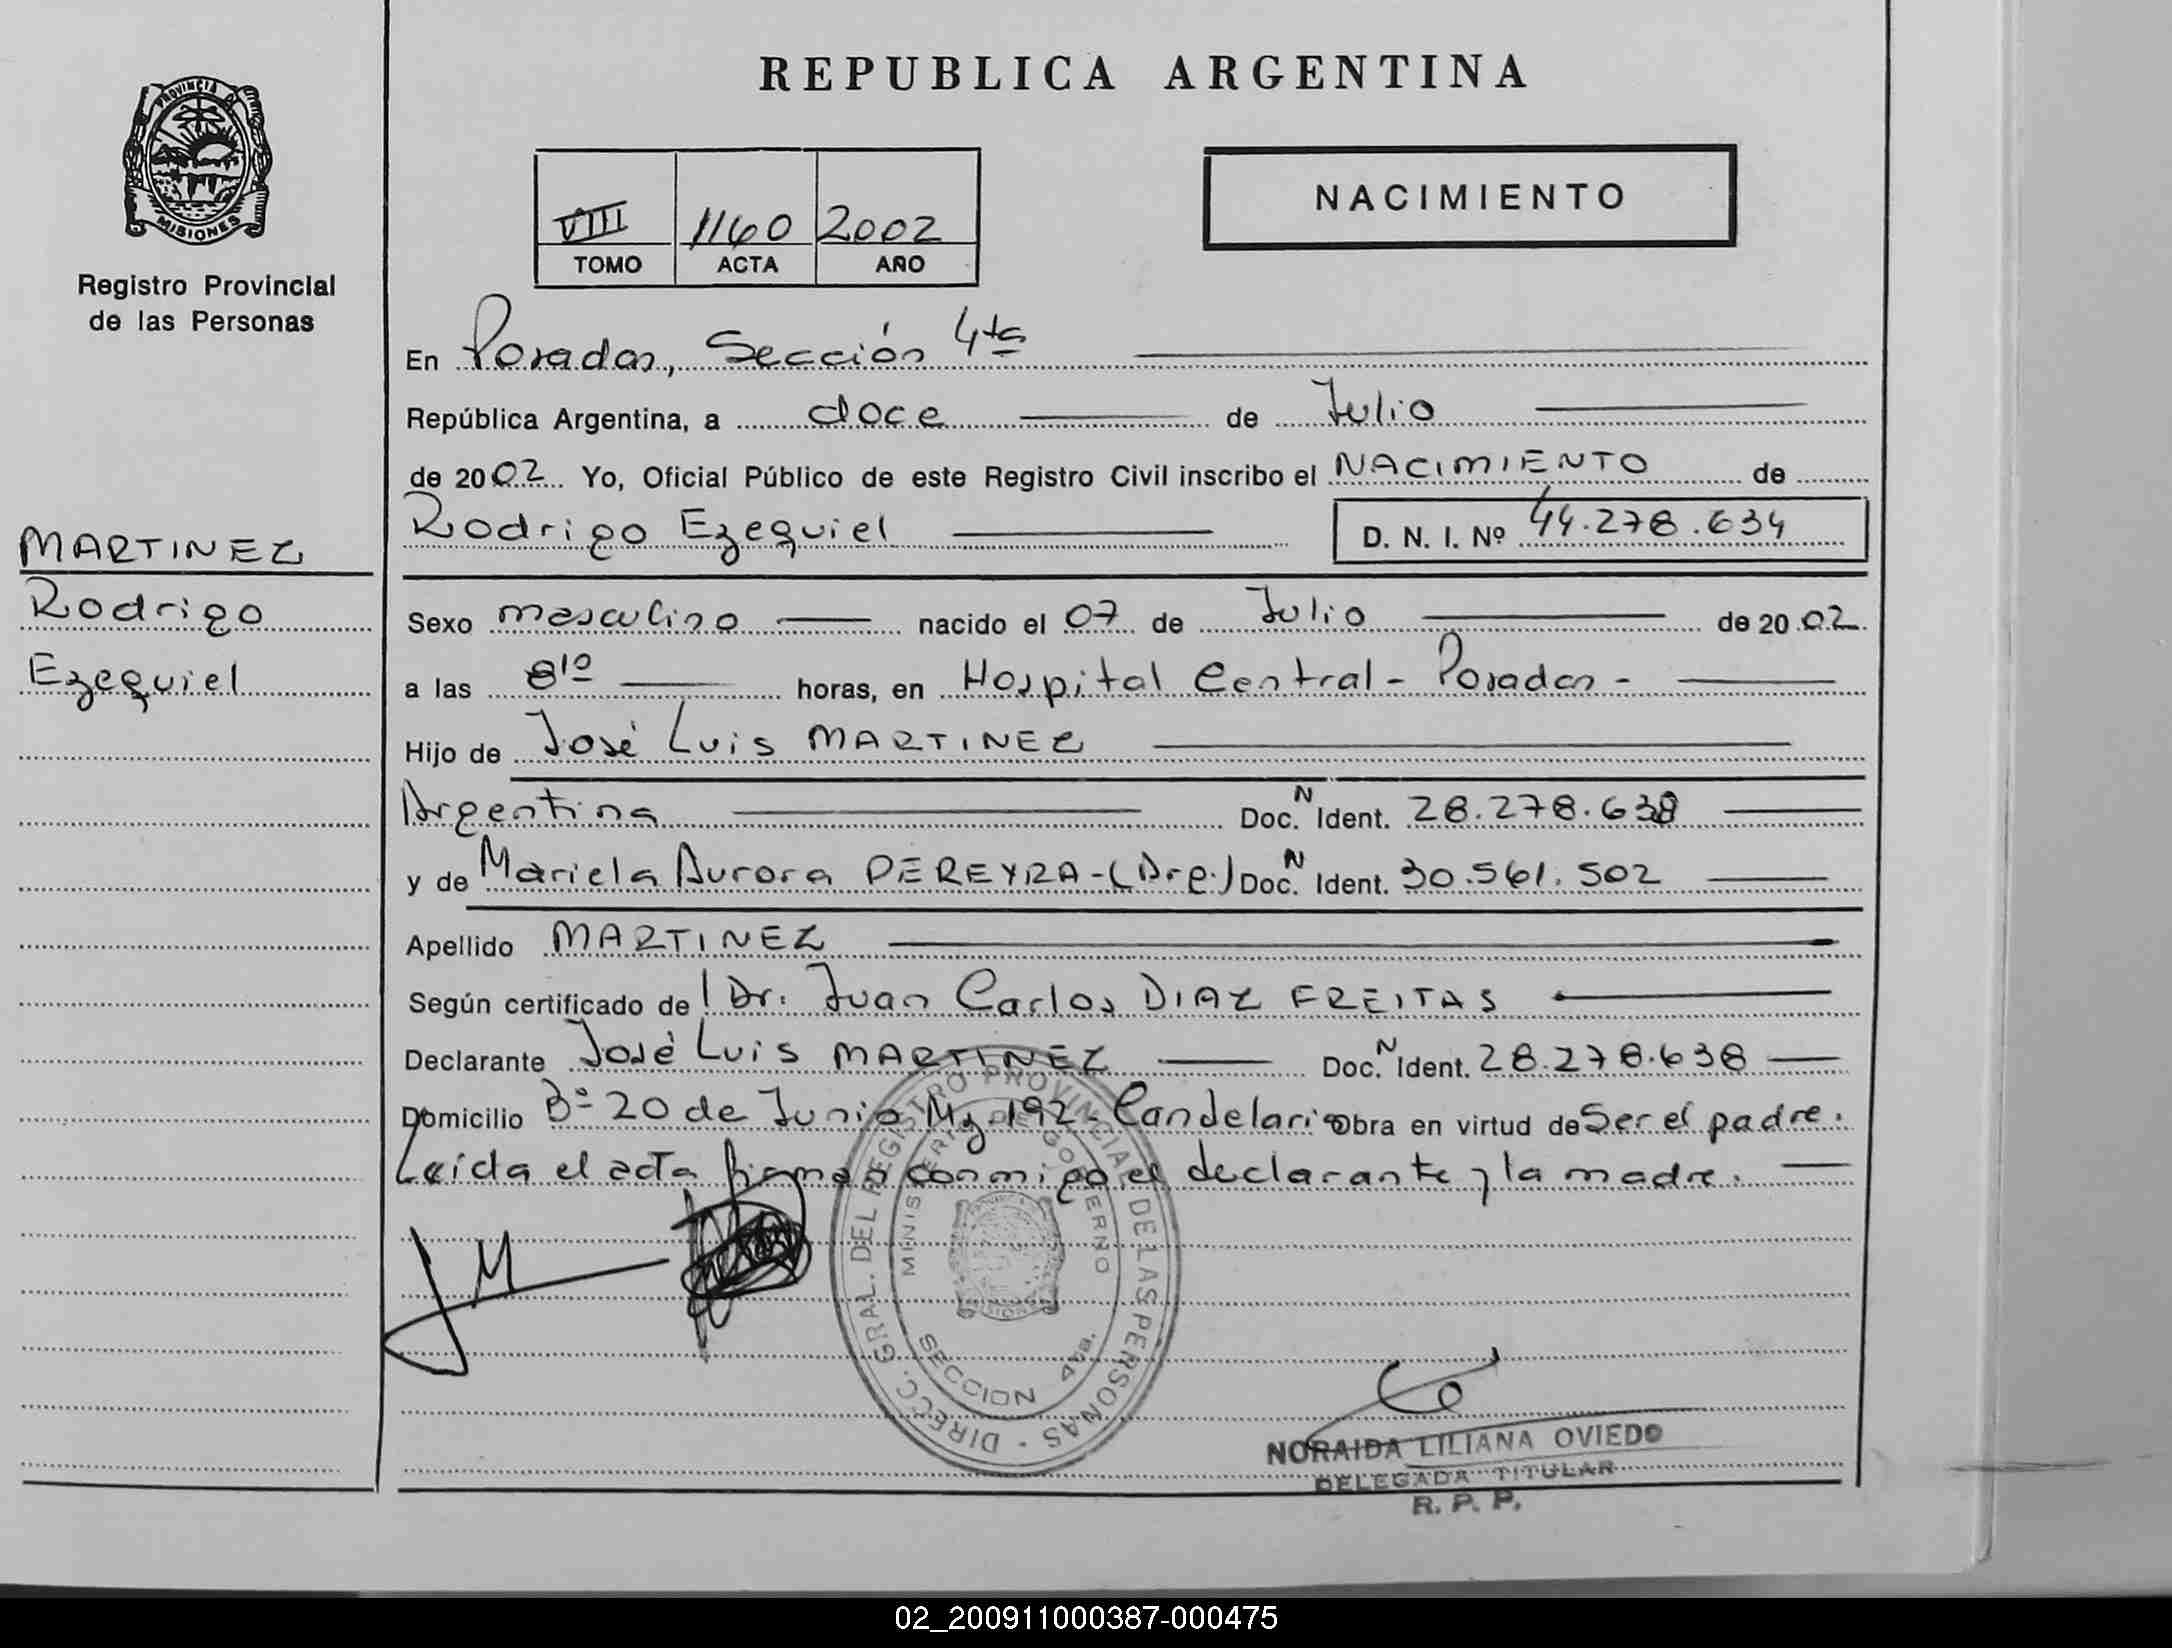 PROVINCIA D
MISIONES
Registro Provincial
de las Personas
MARTINEZ
Rodrigo
Ezequiel
REPUBLICA ARGENTINA
VIII 1160 2002
TOMO ACTA AÑO
NACIMIENTO
En Posadas, Sección 4ta
República Argentina, a doce de Julio
de 2002 Yo, Oficial Público de este Registro Civil inscribo el NACIMIENTO de
Rodrigo Ezequiel D. N. I. Nº 44.278.634
Sexo masculino nacido el 07 de Julio de 2002
a las 8¹⁰ horas, en Hospital Central - Posadas -
Hijo de José Luis MARTINEZ
Argentina Doc. N Ident. 28.278.638
y de Mariela Aurora PEREYRA - (Arg.) Doc. N Ident. 30.561.502
Apellido MARTINEZ
Según certificado del Dr. Juan Carlos DIAZ FREITAS
Declarante José Luis MARTINEZ Doc. N Ident. 28.278.638
Domicilio Bº 20 de Junio Mz 192 - Candelaria Obra en virtud de Ser el padre.
Leída el acta firman conmigo el declarante y la madre.
JM
DIRECC. GRAL. DEL REGISTRO PROVINCIAL DE LAS PERSONAS
MINISTERIO DE GOBIERNO
SECCION 4ta.
NORAIDA LILIANA OVIEDO
DELEGADA TITULAR
R. P. P.
02_200911000387-000475